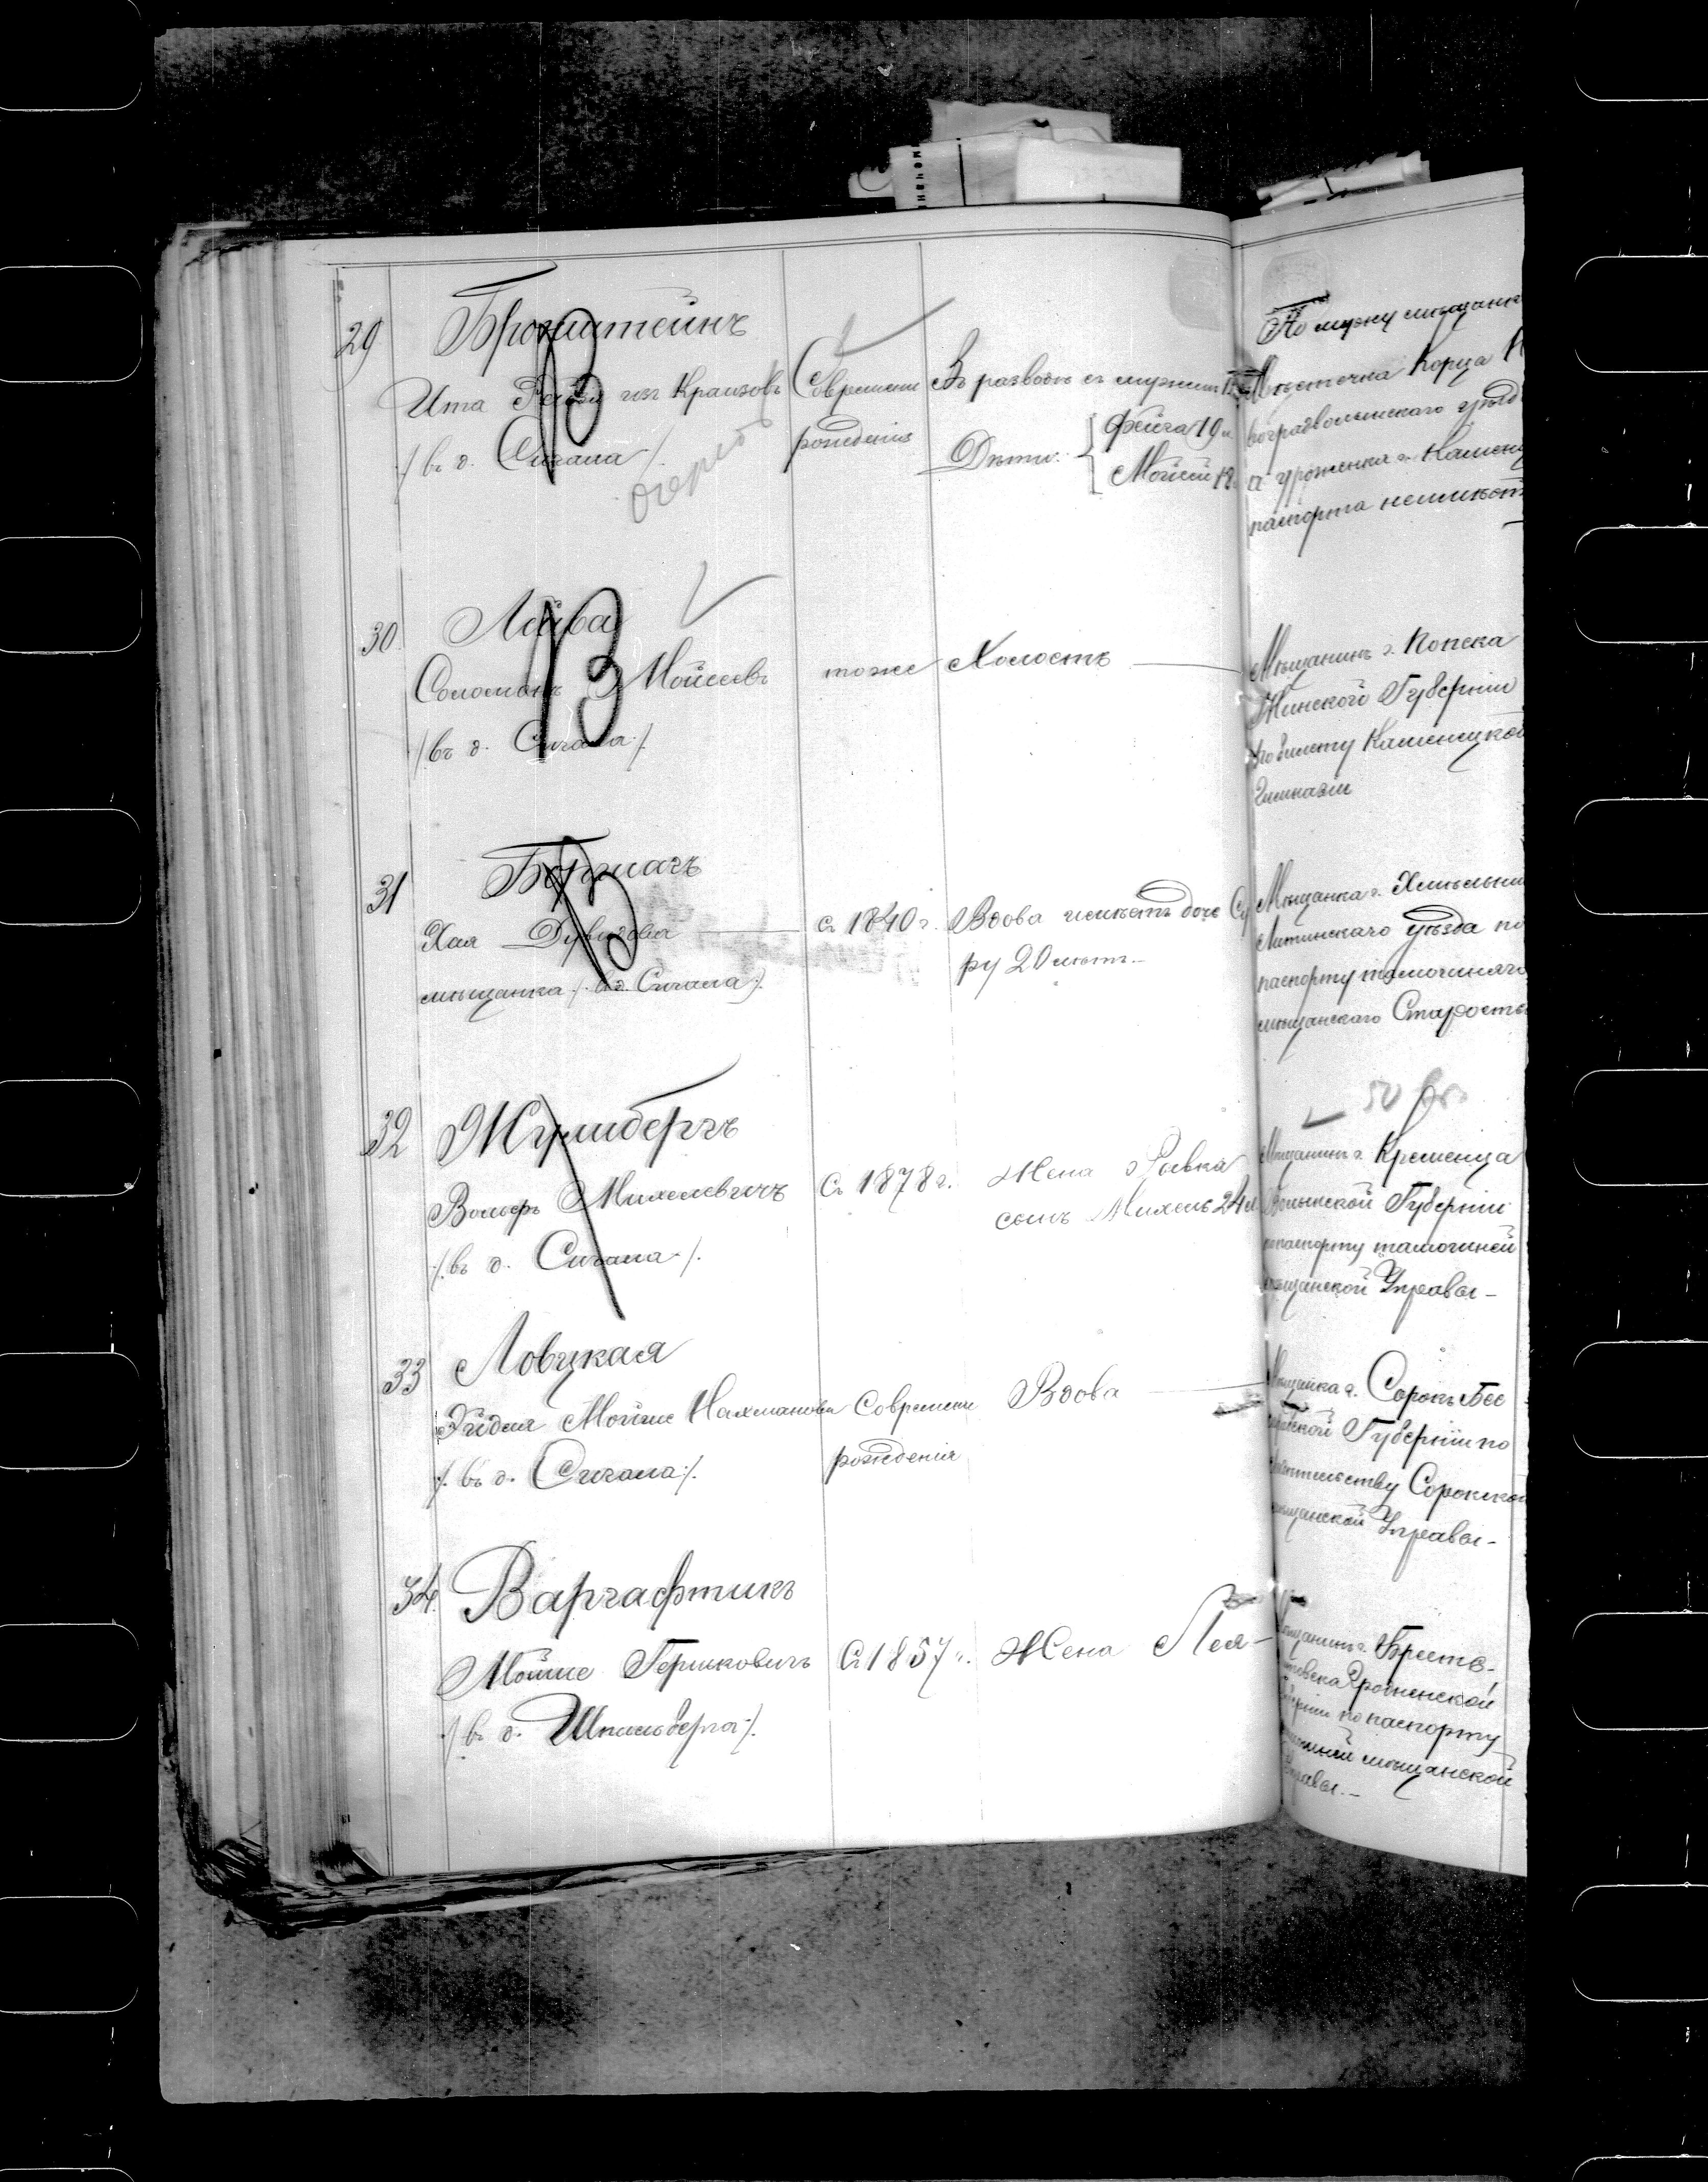 29
Бронштейнъ
Ита Рейзя изъ Краизовъ
/въ д. Сигала/.
очередь
Современи
рожденія
Въ разводѣ съ мужемъ
Дѣти: Фейга 19 л.
Мойсей 12
По мужу мѣщанка
Мѣстечка Корца
воградволынскаго уѣзд
а уроженка г. Камени
паспорта неимѣетъ
30
Лейва
Соломонъ Мойсеевъ
/въ д. Сигала/.
тоже
Холостъ
Мѣщанинъ г. Копска
Минской Губерніи
по билету Каменецкой
Гимназіи
31
Бормачъ
Хая Дувидова
мѣщанка /въ д. Сигала/.
Съ 1840 г.
Вдова имѣетъ доче
ру 20 лѣтъ
Мѣщанка г. Хмѣльни
Литинскаго уѣзда по
паспорту тамошняго
мѣщанскаго Старосты
32
Жулибергъ
Вольфъ Михелевичъ
/.въ д. Сигала/.
Съ 1878 г.
Жена Рывка
сынъ Михель 24 л
50
Мѣщанинъ г. Кременца
Волынской Губерніи
попаспорту тамошней
мѣщанской Управы -
33
Ловуцкая
Эйдля Мойше Нахманова
/. въ д. Сигала/.
Современи
рожденія
Вдова
Мѣщанка г. Сорокъ Бес
Губерніи по
Сорокской
мѣщанской Управы -
34.
Варгафтикъ
Мойше Гершковичъ
/въ д. Шпильберга/.
Съ 1857 г.
Жена Лея -
Мѣщанинъ г. Бреста-
товска Гродненской
по паспорту
мѣщанской